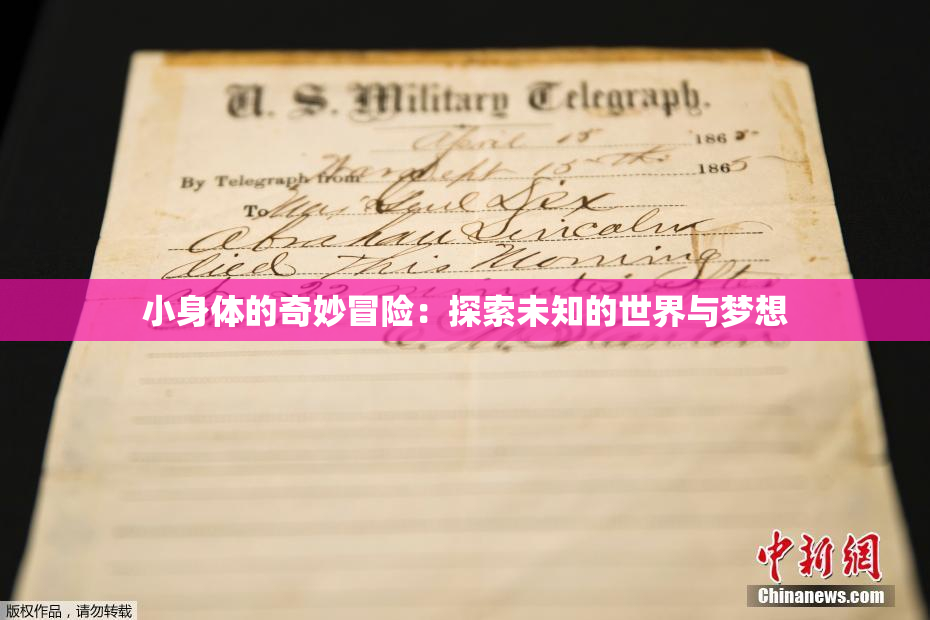 U. S. Military Telegraph.
April 15 1865
By Telegraph from War Dept 15th 1865
To Maj Genl Dix
Abraham Lincoln
died This Morning
22 minutes after
小身体的奇妙冒险：探索未知的世界与梦想
E. M. Stanton
中新网
Chinanews.com
版权作品，请勿转载